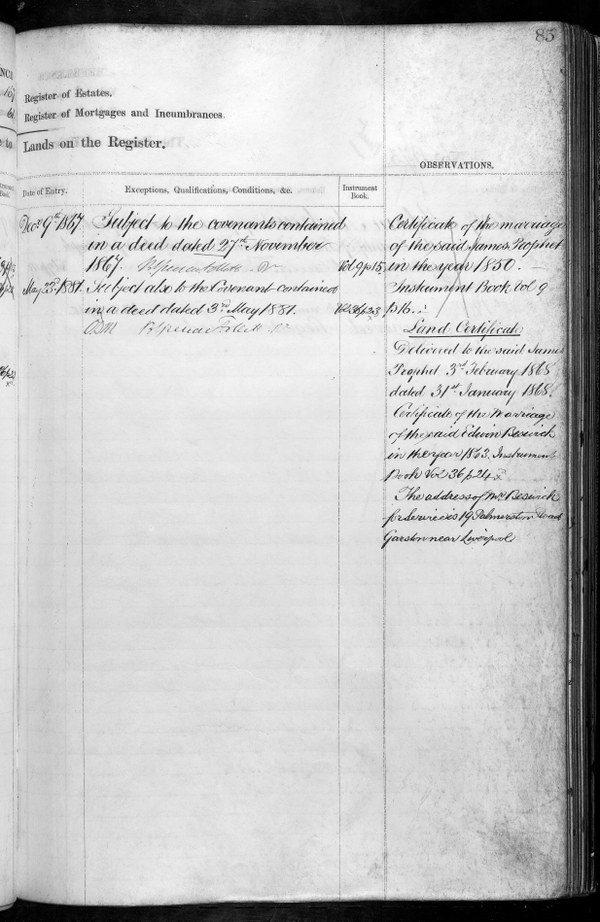 85
Register of Estates.
Register of Mortgages and Incumbrances.
Lands on the Register.
OBSERVATIONS.
Date of Entry.
Exceptions, Qualifications, Conditions, &c.
Instrument Book.
Decr 9th 1867.
Subject to the covenants contained
in a deed dated 27th November
1867.
Vol 9 p 15
May 23rd 1881.
Subject also to the Covenant contained
in a deed dated 3rd May 1881.
Certificate of the marriage
of the said James Prophet
in the year 1850.
Instrument Book Vol 9
p 16.
Land Certificate
Delivered to the said James
Prophet 3rd February 1868
dated 31st January 1868.
Certificate of the Marriage
of the said Edwin Beswick
in the year 1863. Instrument
Book Vol 36 p 24
The address of Mrs Beswick
for Service is 19 Palmerston Road
Garston near Liverpool